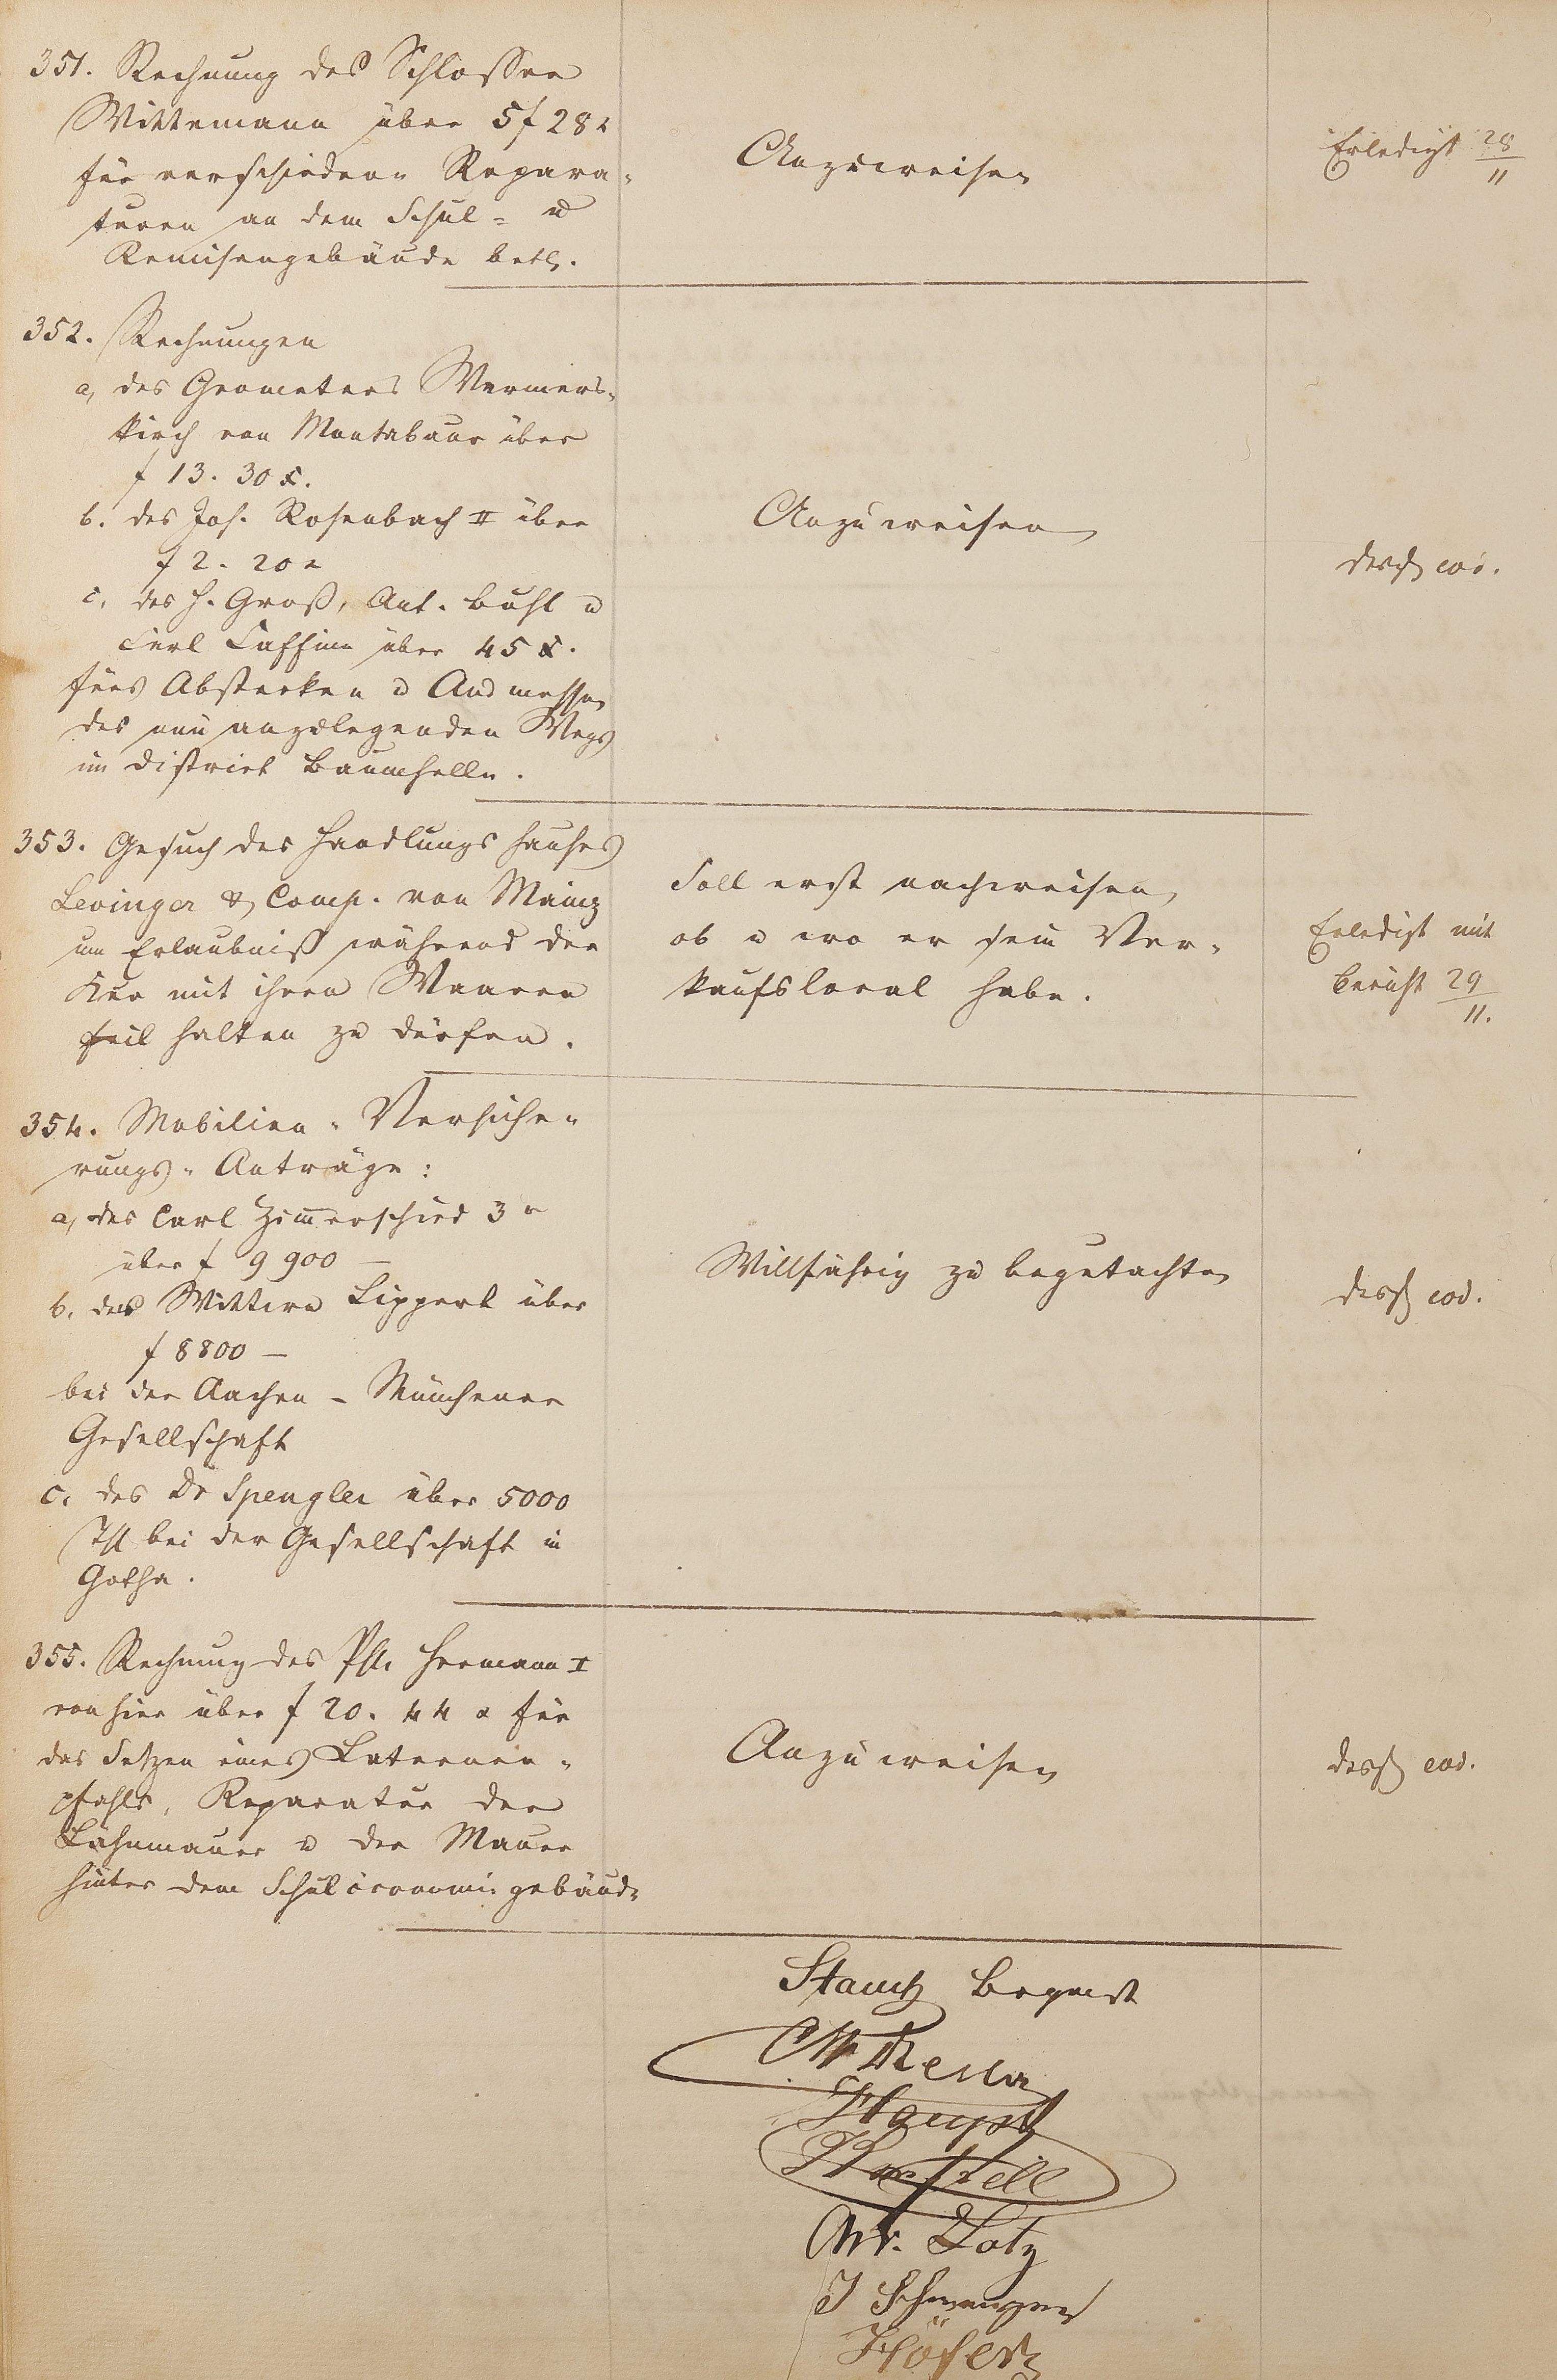 351. Rechnung des Schlosser
Wittemann über 5 f 28 x
für verschiedene Repara-
turen an dem Schul- u
Remisengebäude betr.
Anzuweisen
Erledigt 28/11
352. Rechnungen
a, des Geometers Wermers-
kirch von Montabaur über
f 13. 30 x.
b. des Joh. Rosenbach II über
f 2. 20 x
c. des H. Groß, Ant. Buhl u
Carl über 45 x.
fürs Abstecken u Ausmessen
des neu anzulegenden Wegs
im District Baumhelle.
Anzuweisen
desgl eod.
353. Gesuch des Handlungshauses
Levinger & Comp. von Mainz
um Erlaubniß während der
Kur mit ihren Waaren
feil halten zu dürfen.
Soll erst nachweisen,
ob u wo er sein Ver-
kaufslocal habe.
Erledigt mit
Bericht 29/11.
354. Mobilien-Versiche-
rungs-Anträge:
a, des Carl Zimmerschied 3r
über f 9900 —
b. der Wittwe Lippert über
f 8800 —
bei der Aachen-Münchener
Gesellschaft
c. des Dr Spengler über 5000
Thl bei der Gesellschaft in
Gotha.
Willfährig zu begutachten
desgl eod.
355. Rechnung des Phl. Hermann I
von hier über f 20. 44 x für
das Setzen eines Laternen-
pfahls, Reparatur der
Lahnmauer u der Mauer
hinter dem Schulöconomiegebäude
Anzuweisen
desgl eod.
Haupt
Chr. Lotz